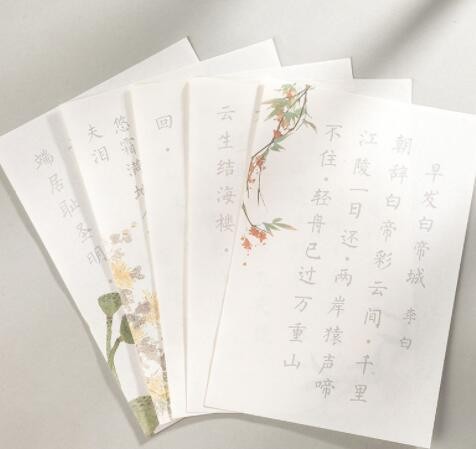 早发白帝城
李白
朝辞白帝彩云间。千里
江陵一日还。两岸猿声啼
不住。轻舟已过万重山
云生结海楼。
回。
悠满地
夫泪
端居耻圣明